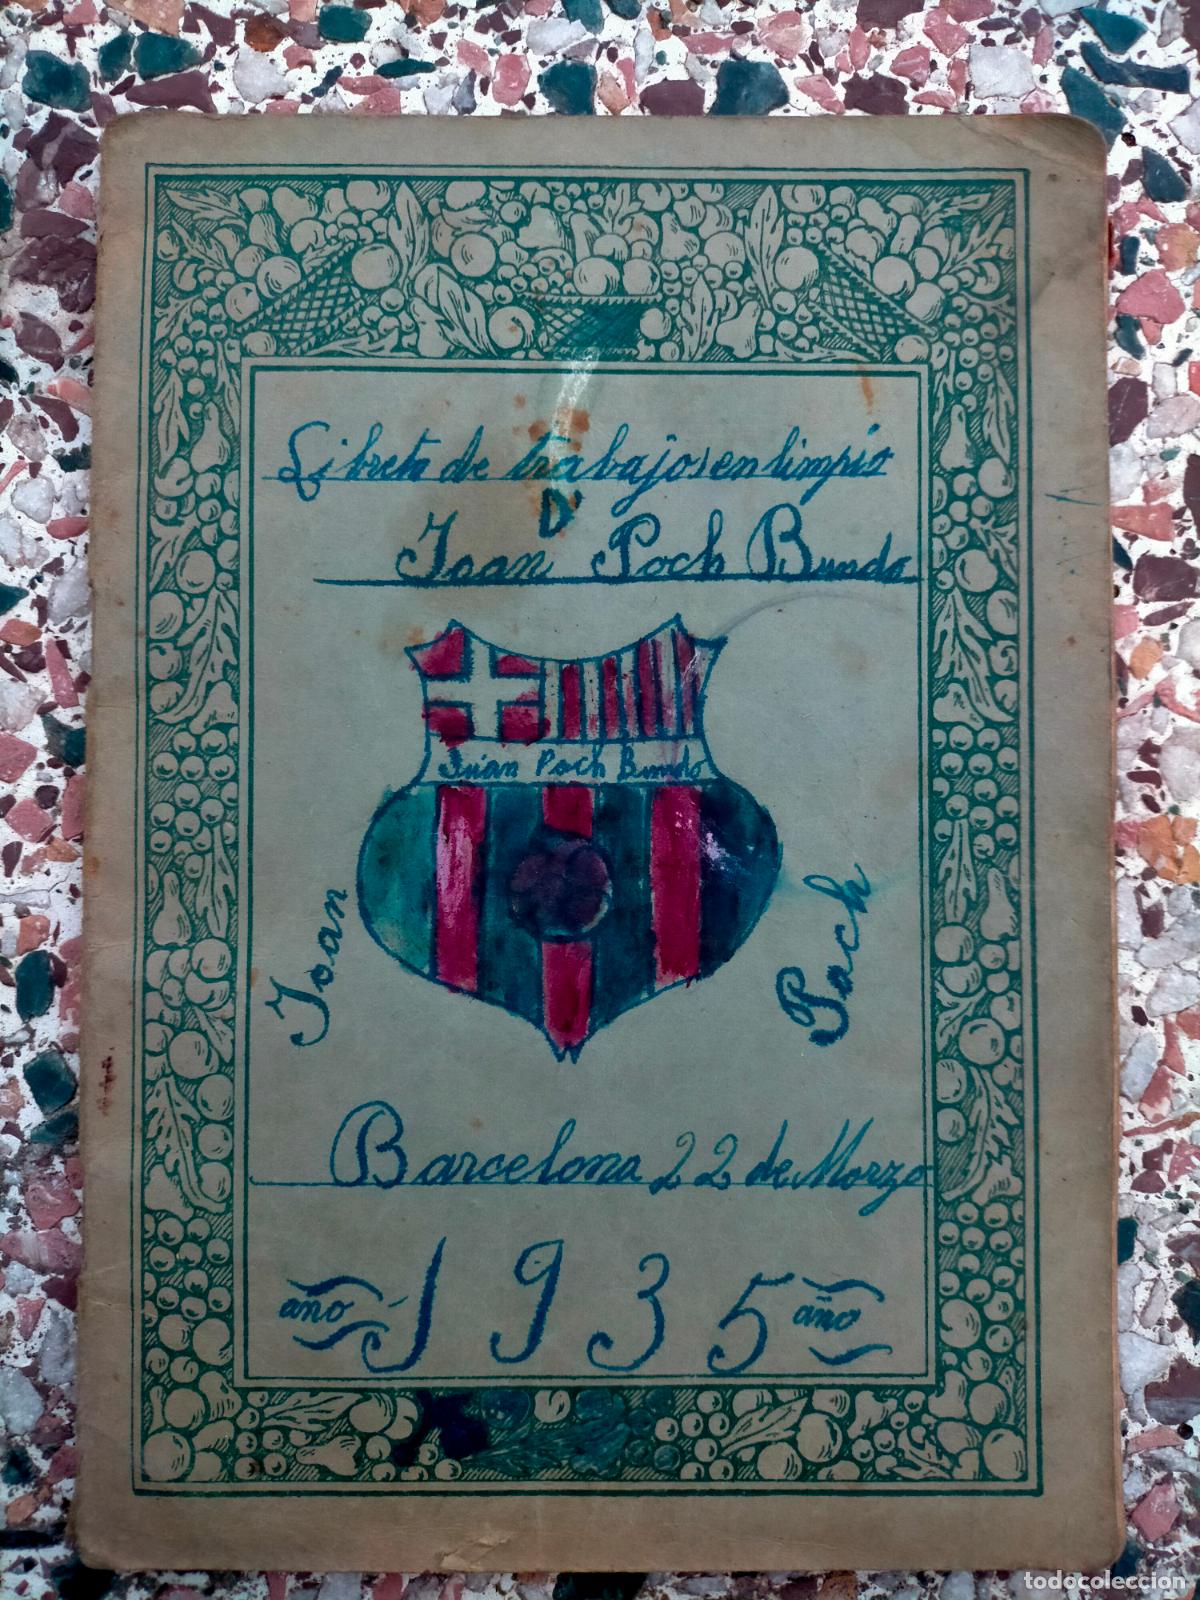 Libreta de trabajos en limpio
D'
Joan Poch Bundo
Juan Poch Bundo
Joan
Poch
Barcelona 22 de Marzo
año 1935 año
todocoleccion